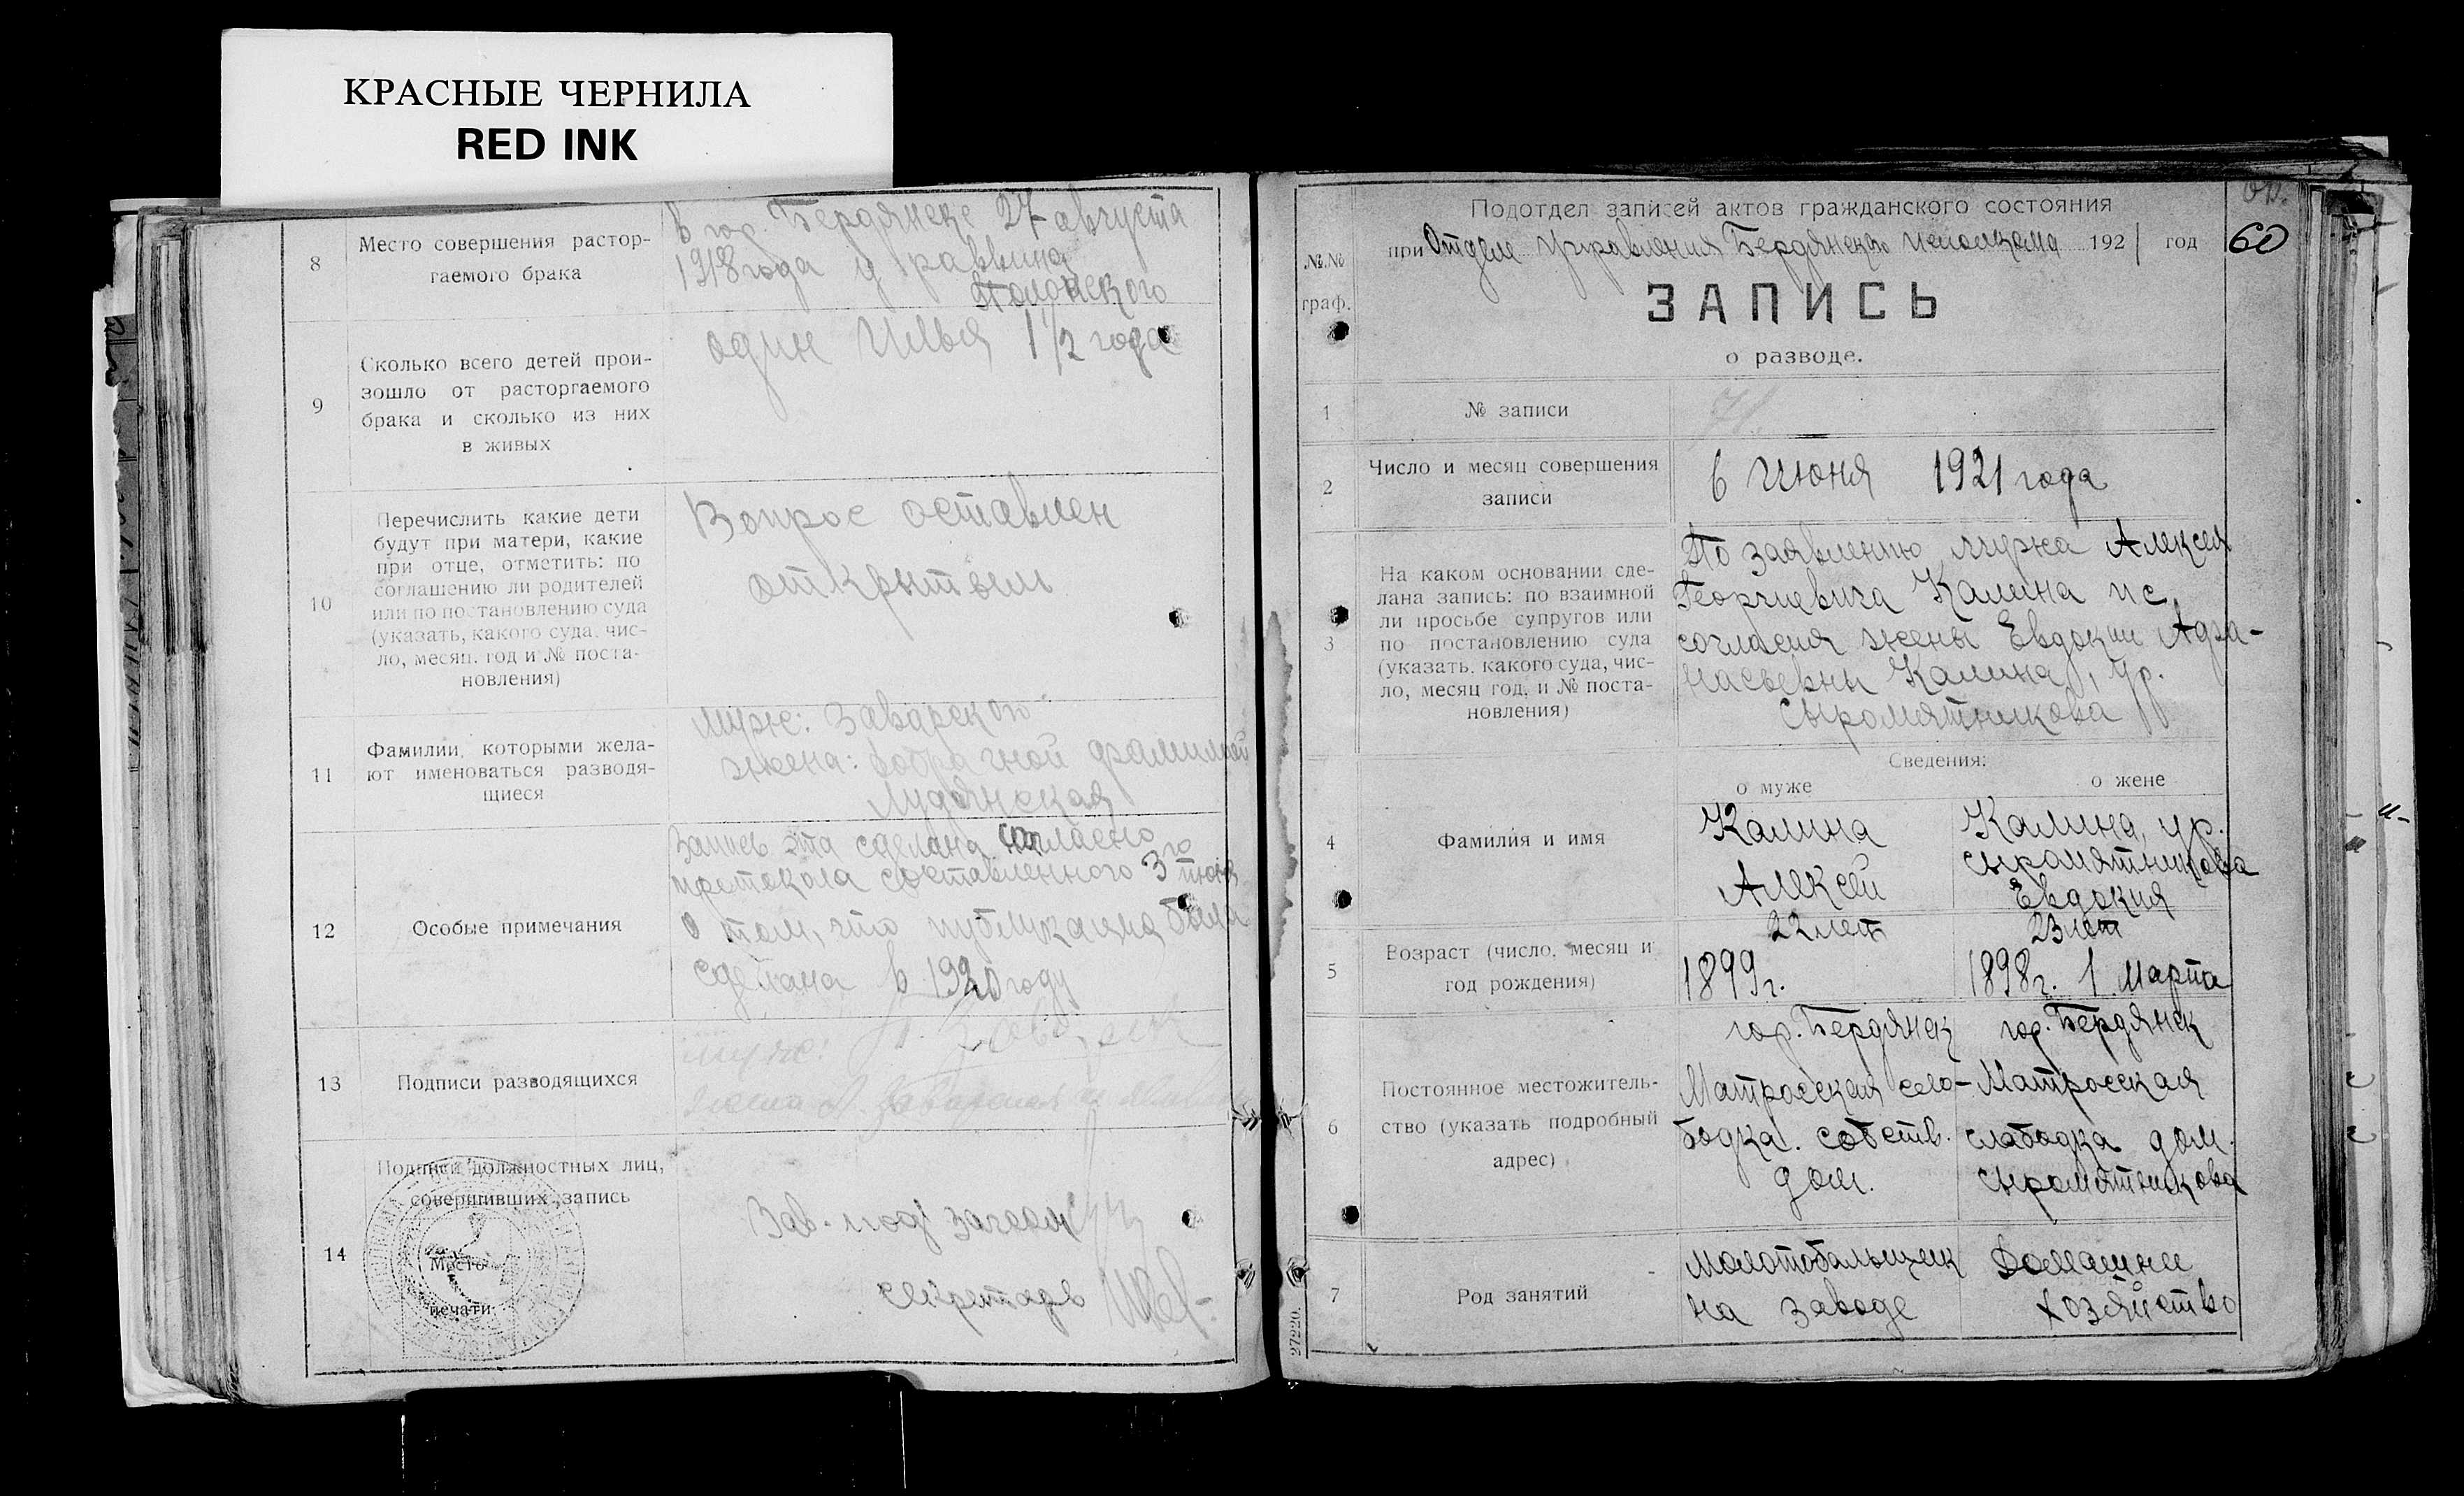 КРАСНЫЕ ЧЕРНИЛА
RED INK
8
Место совершения растор-
гаемого брака
в гор. Бердянске 27 августа
1918 года у раввина
Полонского
9
Сколько всего детей прои-
зошло от расторгаемого
брака и сколько из них
в живых
один Илья 1 1/2 года
10
Перечислить какие дети
будут при матери, какие
при отце, отметить: по
соглашению ли родителей
или по постановлению суда
(указать, какого суда, чис-
ло, месяц, год и № поста-
новления)
Вопрос оставлен
открытым
11
Фамилии, которыми жела-
ют именоваться разводя-
щиеся
муж: Заварского
жена: добрачной фамилией
12
Особые примечания
Запись эта сделана согласно
протокола составленного 3го июня
о том, что публикация была
сделана в 1920 году
13
Подписи разводящихся
муж:
жена
14
Подписи должностных лиц,
совершивших запись
Место
печати
Зав. под
секретарь
Подотдел записей актов гражданского состояния
при Отделе Управления Бердянского Исполкома 1921 год
60
№№
граф.
ЗАПИСЬ
о разводе.
1
№ записи
71.
2
Число и месяц совершения
записи
6 Июня 1921 года
3
На каком основании сде-
лана запись: по взаимной
ли просьбе супругов или
по постановлению суда
(указать, какого суда, чис-
ло, месяц год, и № поста-
новления)
По заявлению мужа Алексея
Георгиевича Калина и с
согласия жены Евдокии Афа-
насьевны Калина, ур.
Сыромятникова
Сведения:
о муже
о жене
4
Фамилия и имя
Калина
Алексей
Калина, ур.
Сыромятникова
Евдокия
5
Возраст (число, месяц и
год рождения)
22 лет
1899г.
23 лет
1898г. 1 Марта
6
Постоянное местожитель-
ство (указать подробный
адрес)
гор. Бердянск
Матросская сло-
бодка. собств.
дом.
гор. Бердянск
Матросская
слабодка дом.
Сыромятникова
7
Род занятий
молотобальщик
на заводе
Домашнее
хозяйство
27220.